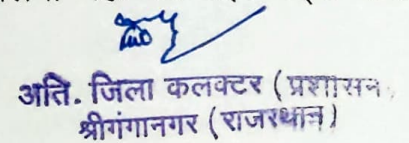 अति. जिला कलक्टर (प्रशासन
श्रीगंगानगर (राजस्थान)